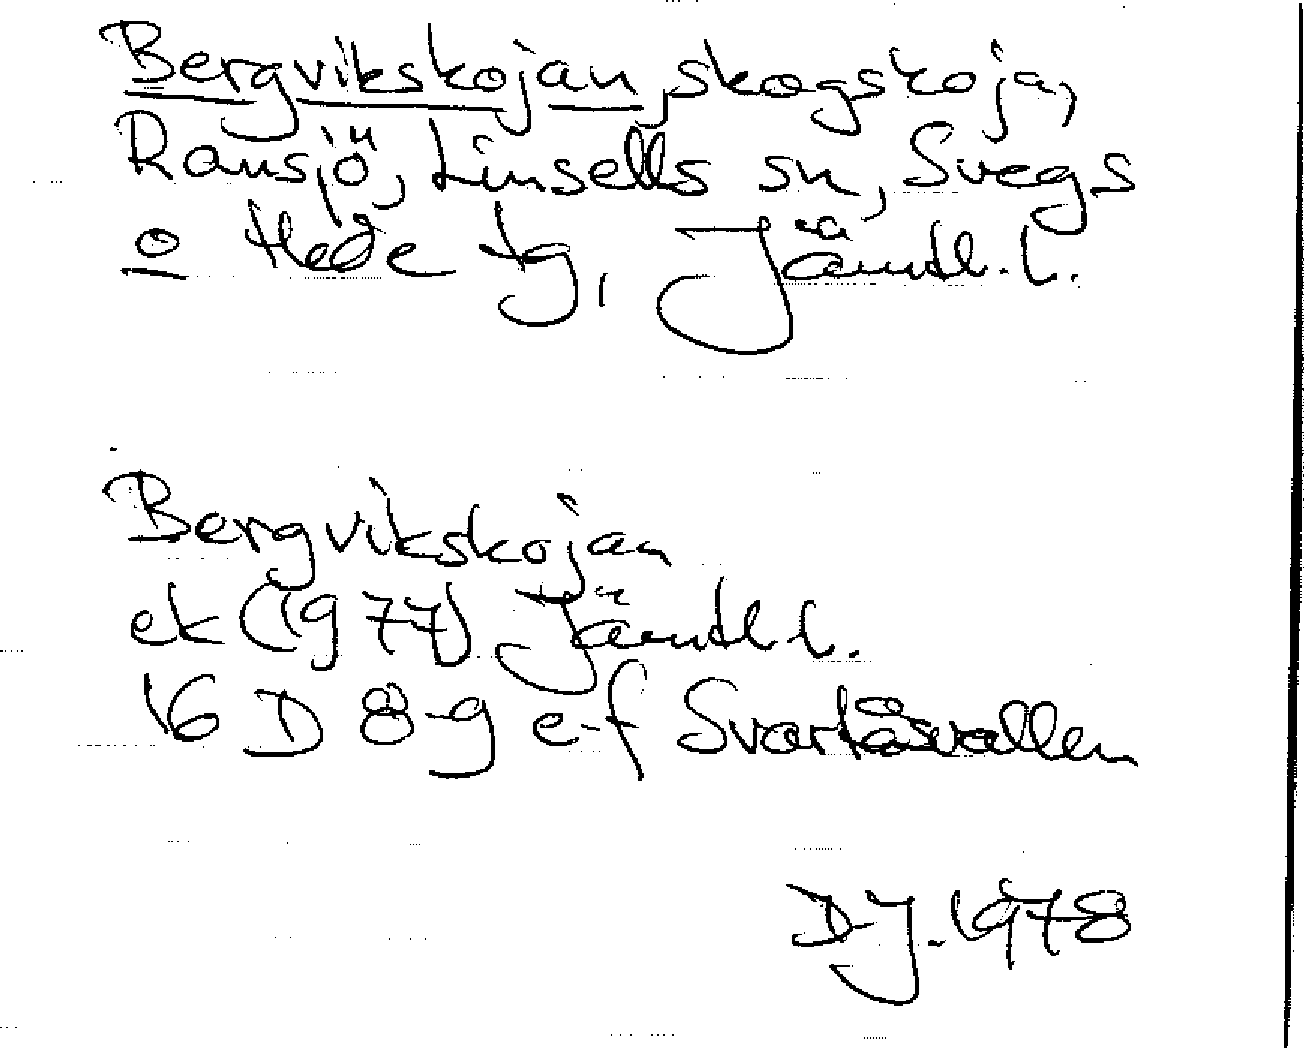 Bergvikskojan, skogskoja,
Ransjö, Linsells sn, Svegs
o Hede tg, Jämtl. l.
Bergvikskojan
ek (1977) Jämtl l.
16 D 8-g e-f Svartåsvallen
DJ. 1978